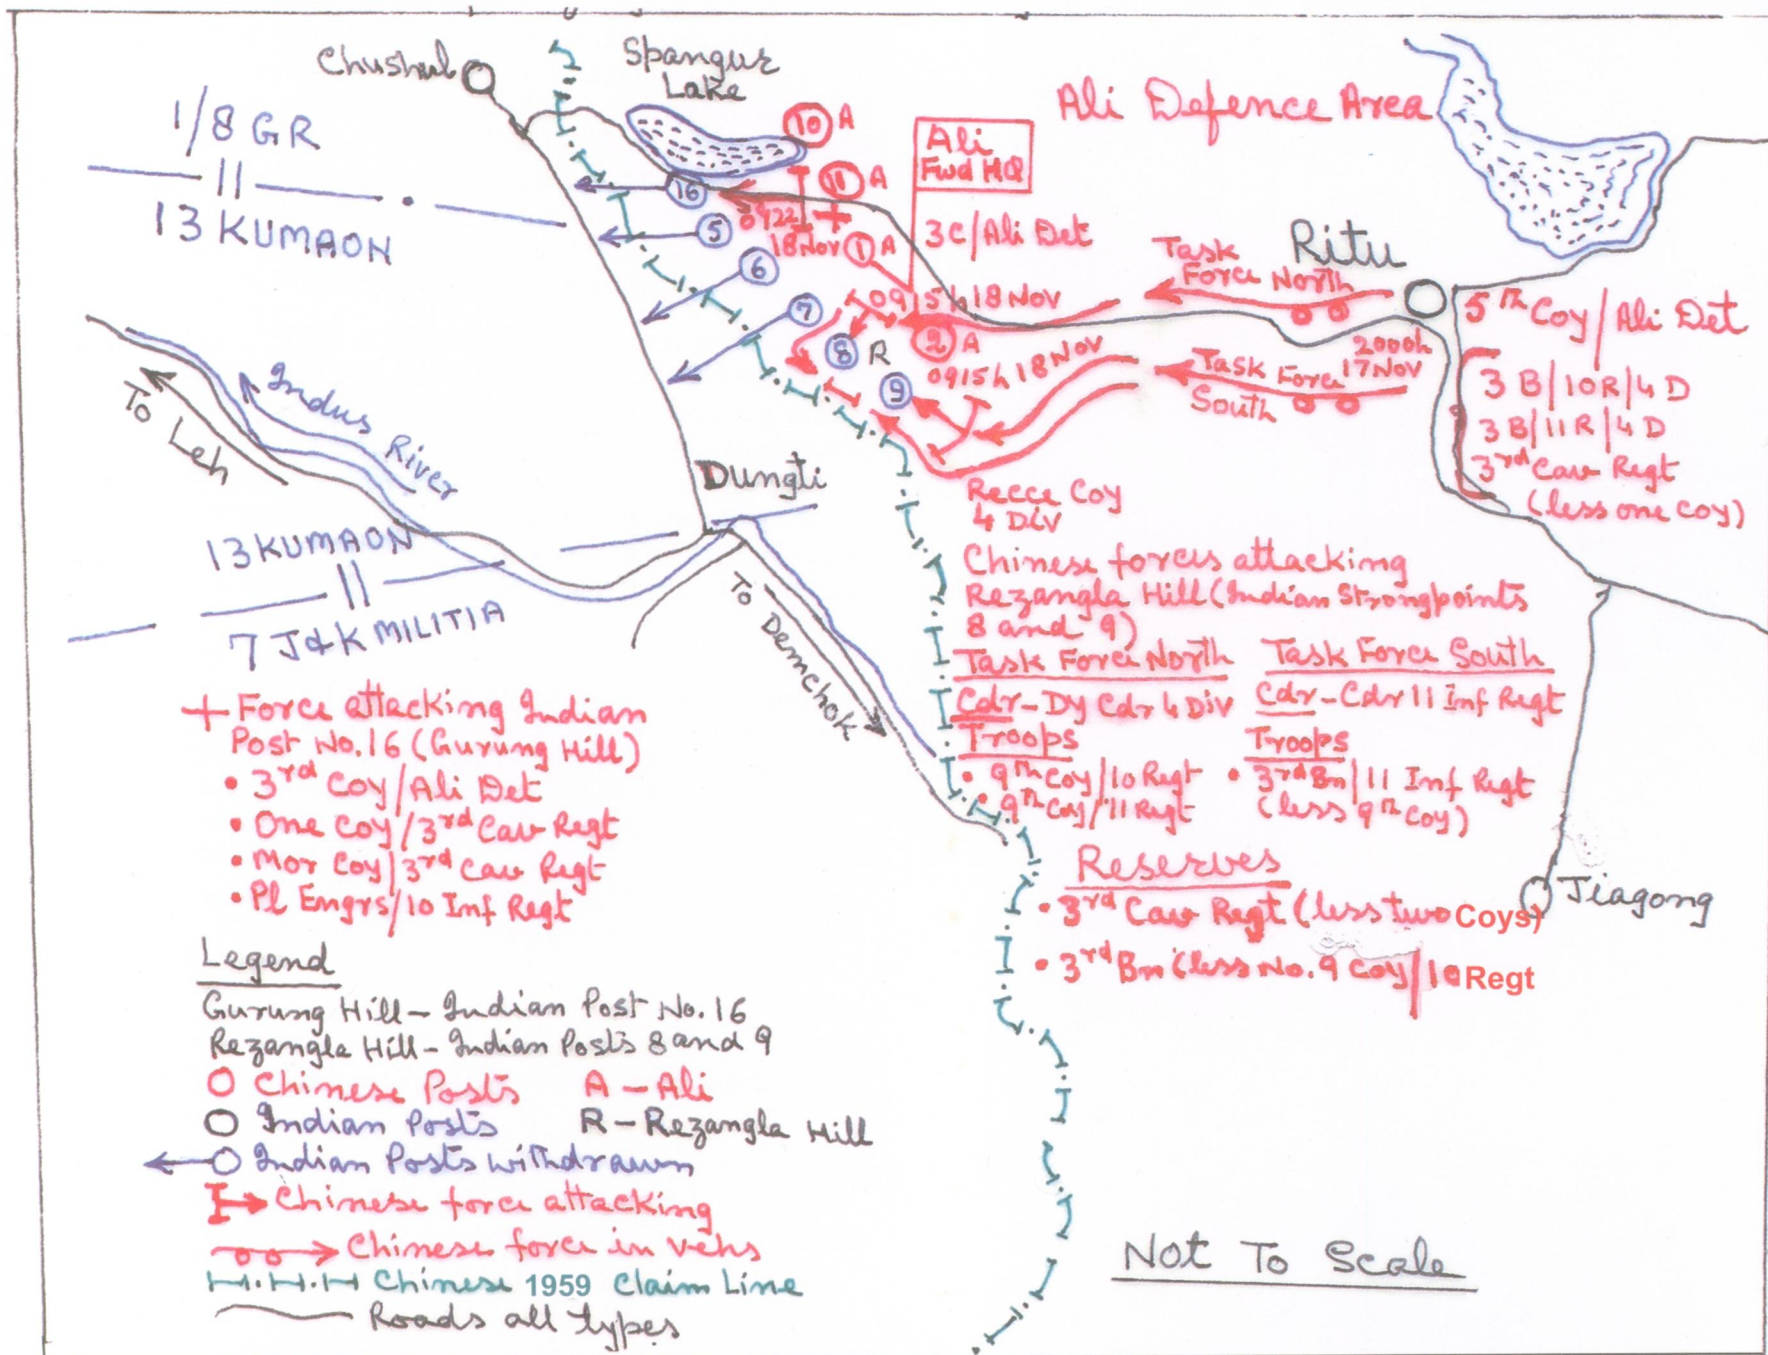 Chushul
Spangur
Lake
1/8 GR
13 KUMAON
10 A
11 A
Ali
Fwd HQ
Ali Defence Area
16
5
6
7
0922
18 Nov
1 A
3C/Ali Det
0915h 18 Nov
2 A
0915h 18 Nov
8 R
9
Task
Force North
Ritu
Task Force
South
2000h
17 Nov
5th Coy/Ali Det
3 B/10R/4 D
3 B/11 R/4 D
3rd Cav Regt
(less one coy)
Indus River
To Leh
Dungti
To Demchok
13 KUMAON
7 J&K MILITIA
Recce Coy
4 Div
Chinese forces attacking
Rezangla Hill (Indian Strongpoints
8 and 9)
Task Force North
Cdr-Dy Cdr 4 Div
Troops
• 9th Coy/10 Regt
• 9th Coy/11 Regt
Task Force South
Cdr-Cdr 11 Inf Regt
Troops
• 3rd Bn/11 Inf Regt
(less 9th Coy)
Reserves
• 3rd Cav Regt (less two Coys)
• 3rd Bn (less No. 9 Coy/10 Regt
Jiagong
+ Force attacking Indian
Post No. 16 (Gurung Hill)
• 3rd Coy/Ali Det
• One Coy/3rd Cav Regt
• Mor Coy/3rd Cav Regt
• Pl Engrs/10 Inf Regt
Legend
Gurung Hill - Indian Post No. 16
Rezangla Hill - Indian Posts 8 and 9
Chinese Posts A - Ali
Indian Posts R - Rezangla Hill
Indian Posts withdrawn
Chinese force attacking
Chinese force in vehs
Chinese 1959 Claim Line
Roads all types
Not To Scale